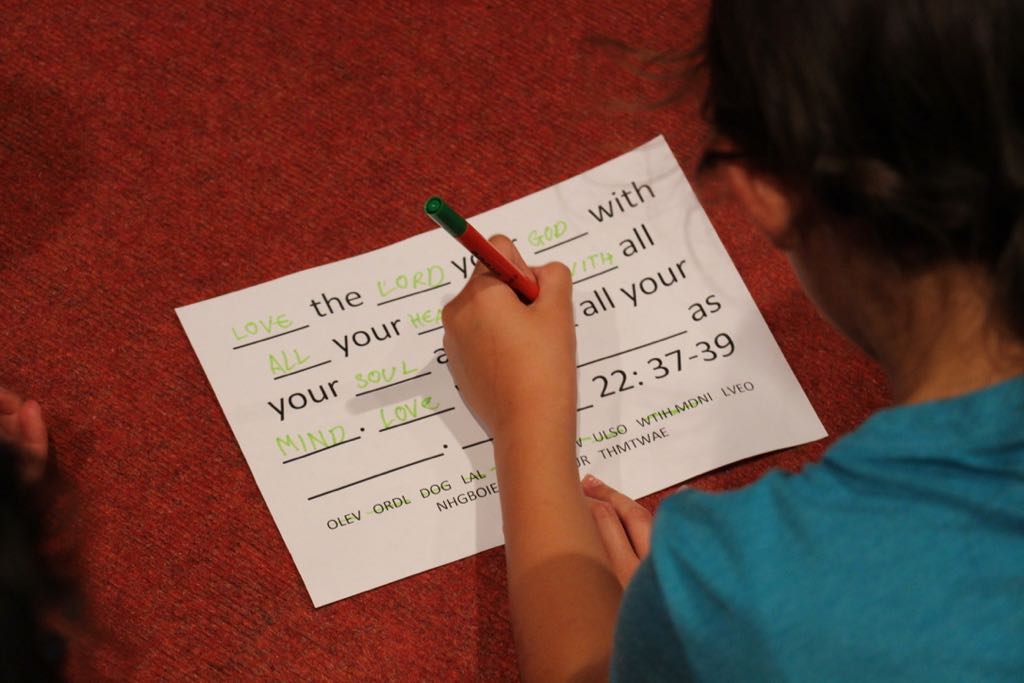 LOVE the LORD GOD with
ALL your WITH all
your SOUL all your
MIND. LOVE as
. 22: 37-39
OLEV ORDL DOG LAL ULSO WTIH MDNI LVEO
NHGBOIE THMTWAE